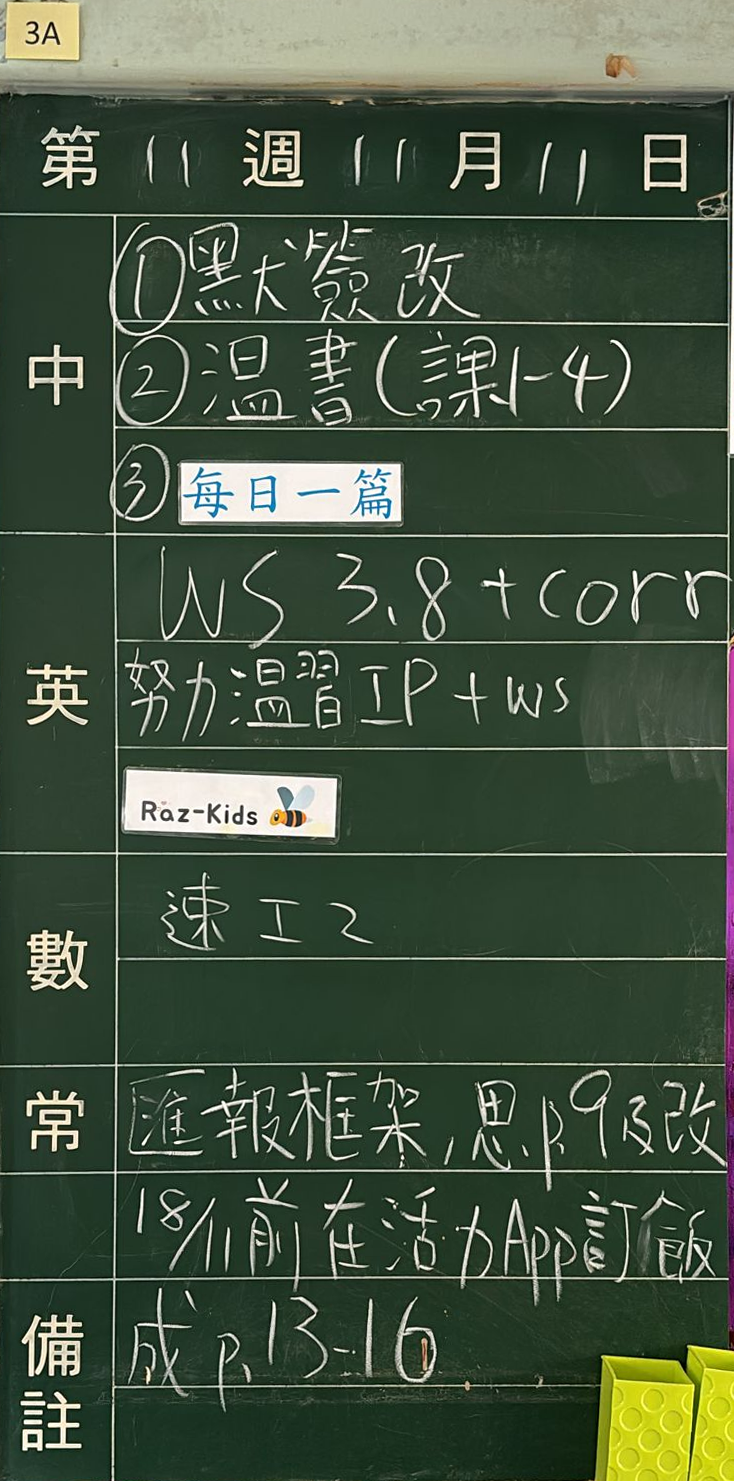 3A
第 11 週 11 月 11 日
中
①默簽改
②溫書(課1-4)
③每日一篇
英
WS 3.8 + corr
努力溫習 IP + ws
Raz-Kids
數
速工2
常
匯報框架,思.p.9及改
18/11前在活力App訂飯
備註
成 p.13-16